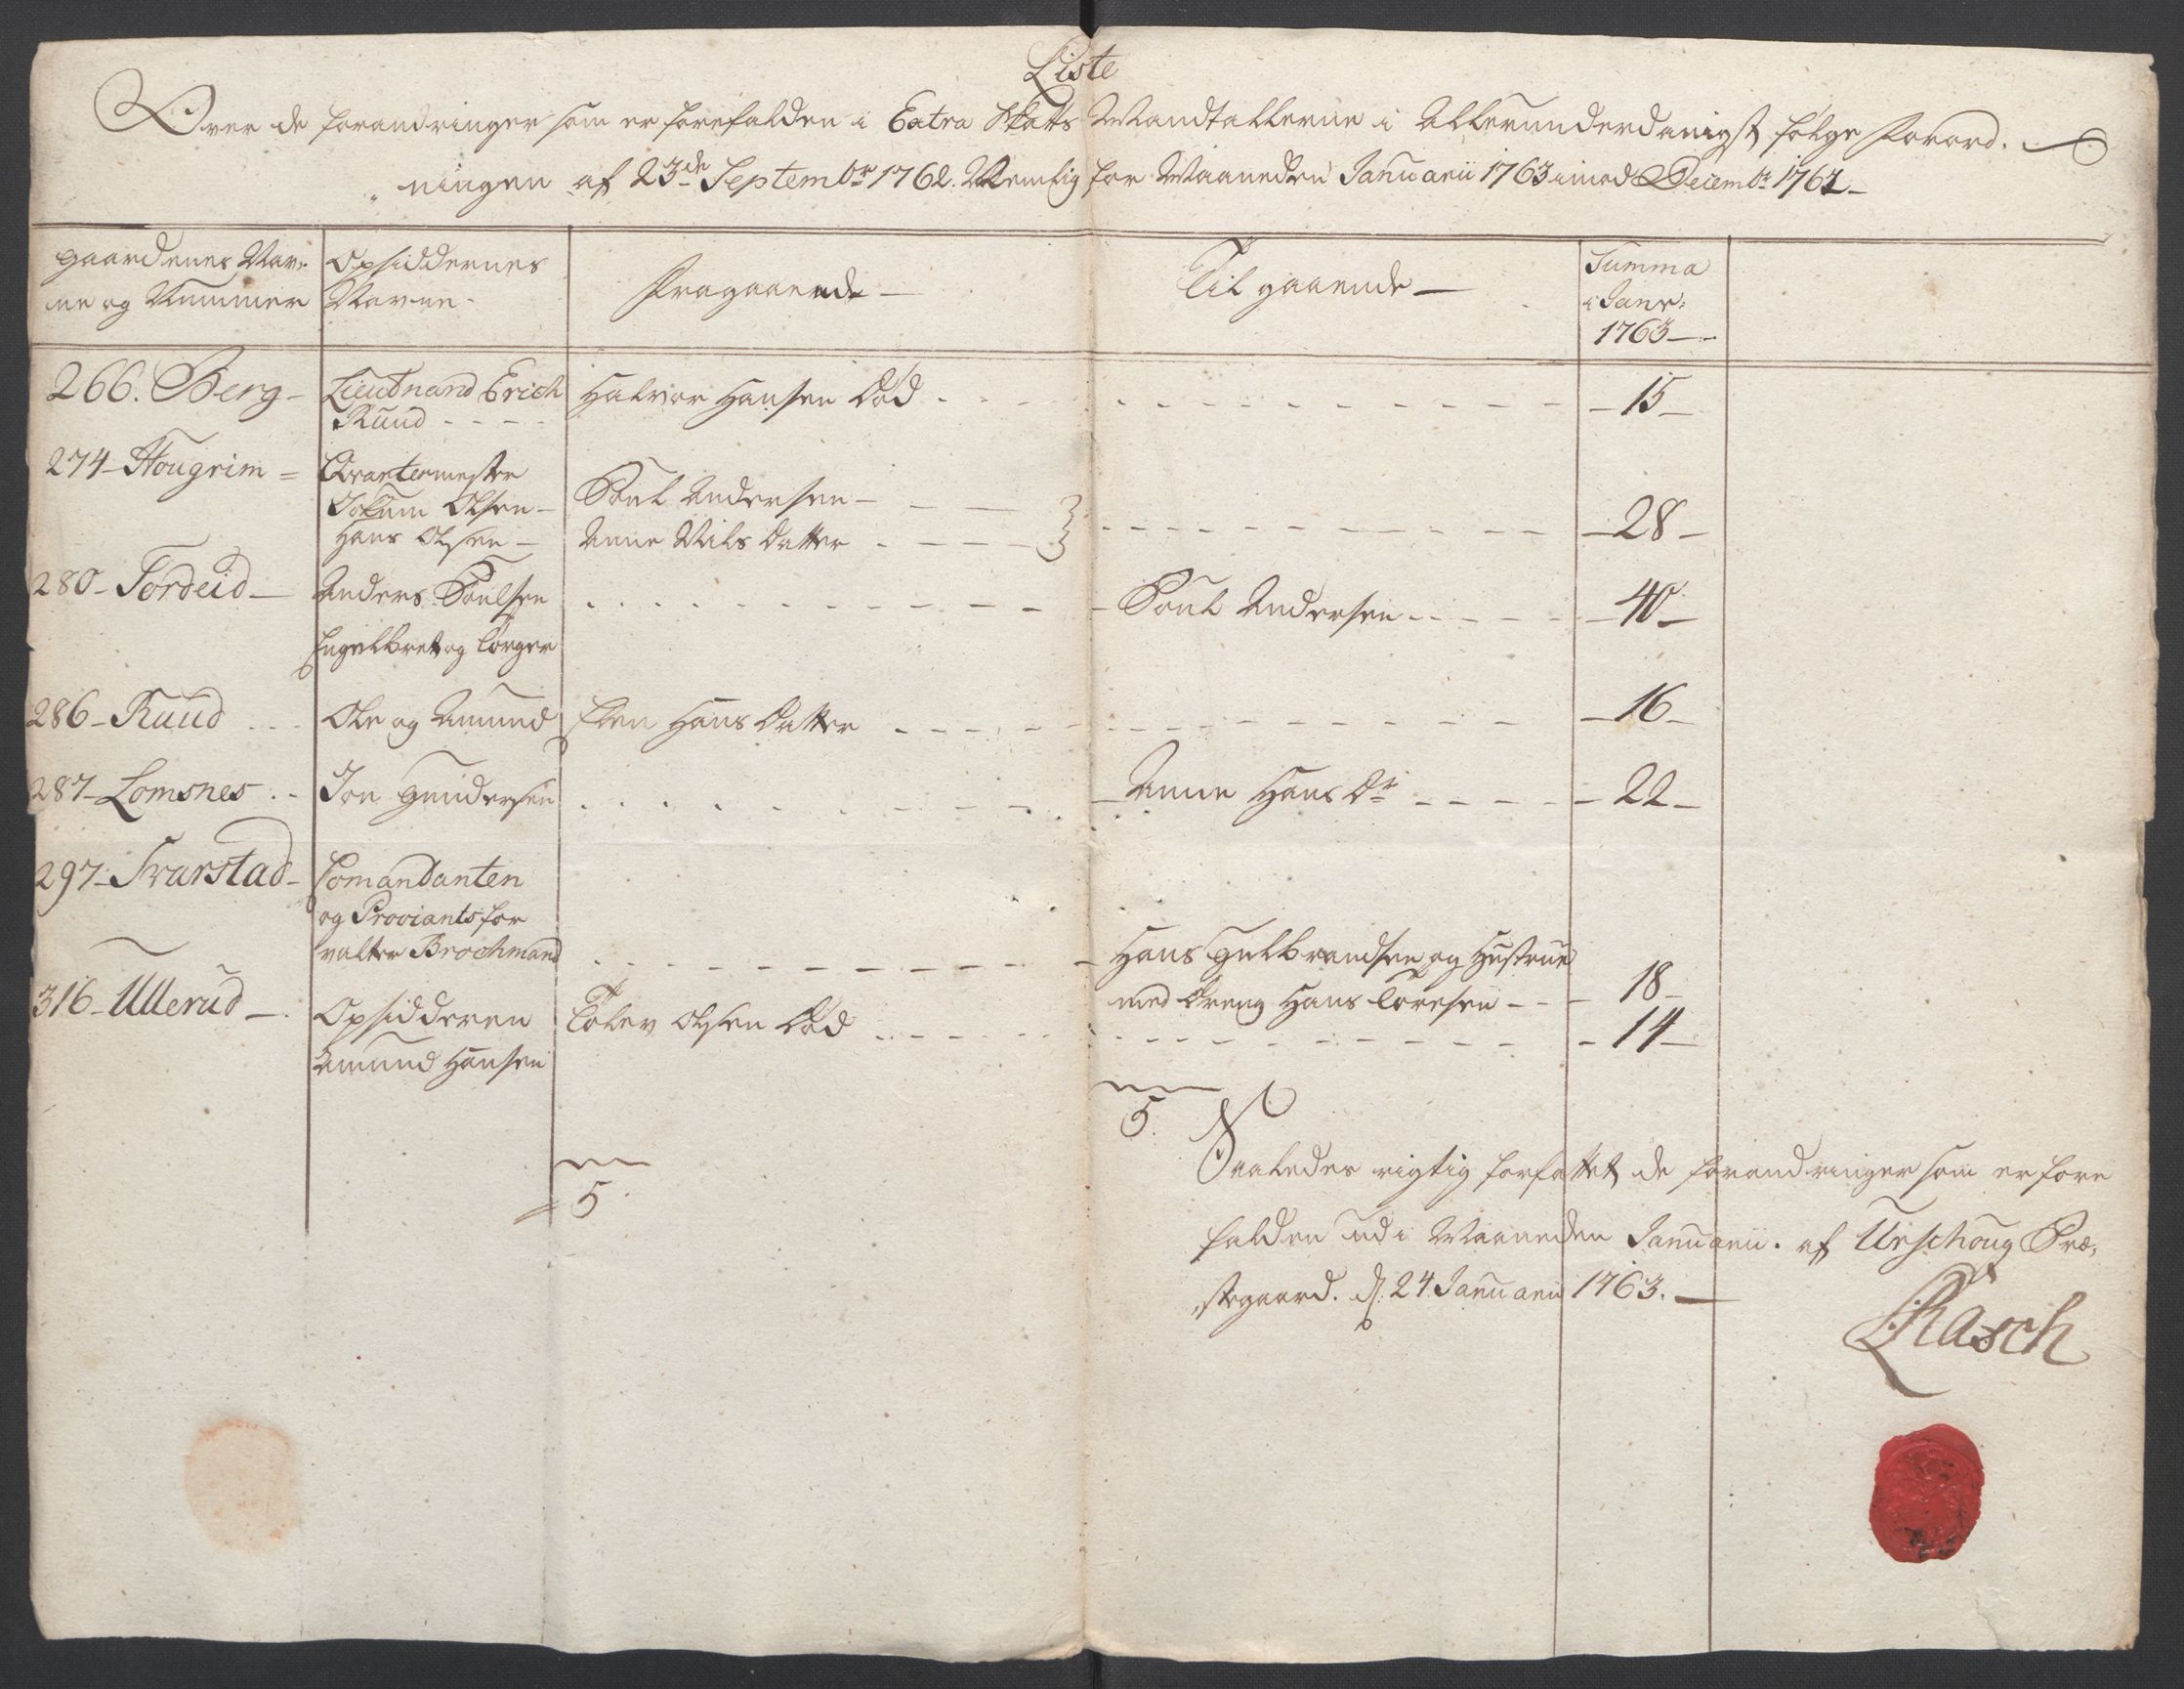 Liste
Over de forandringer som er forefalden i Extra Skatts Mandtallerne i Allerunderdanigst følge Forord-
ningen af 23de Septembr 1762. Nemlig for Maaneden Januarii 1763 imod Decembr 1762
gaardenes Nav-
ne og Nummer
Opsiddernes
Navne
Fragaaende
Til gaaende
Summa
i Janr:
1763
266. Berg
Lieutnand Erich
Ruud
Halvor Hansen Død
15
274 Hougrim
Qvartermester
Jokum Olsen
Hans Olsen
Poul Andersen
Anne Nils Datter
28
280 Tordeid
Anders Poulsen
Engelbret og Torger
Poul Andersen
40
286 Ruud
Ole og Amund
Elen Hans Datter
16
287 Lomsnes
Jon Gundersen
Anne Hans Dr
22
297 Svarstad
Comandanten
og Proviantsfor
valter Brochmand
Hans Gulbrandsen og Hustrue
med dreng Hans Toresen
18
316 Ullerud
Opsidderen
Amund Hansen
Tolev Olsen Død
14
5.
5
Saaledes rigtig forfattet de forandringer som er fore
falden udi Maaneden Januarii. af Urschoug Præ-
stegaard. d. 24 Januarii 1763.
Rasch